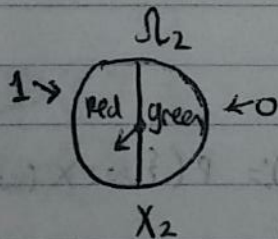 Ω₂
1 → red green ← 0
X₂